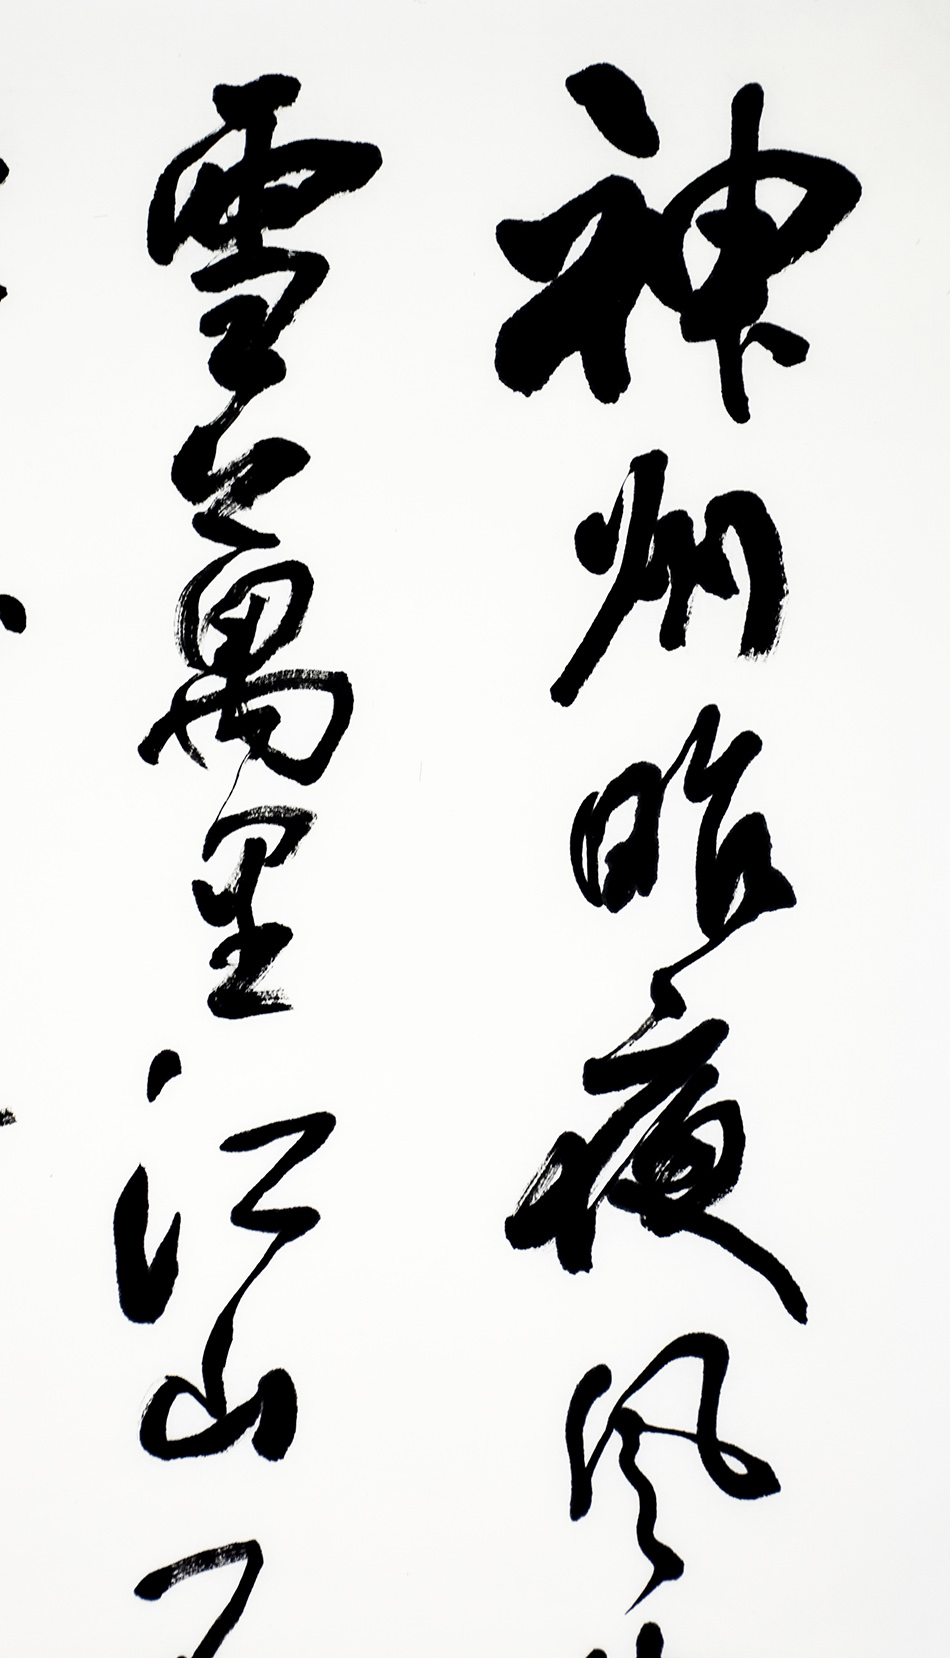 神州昨夜風
雪萬里江山